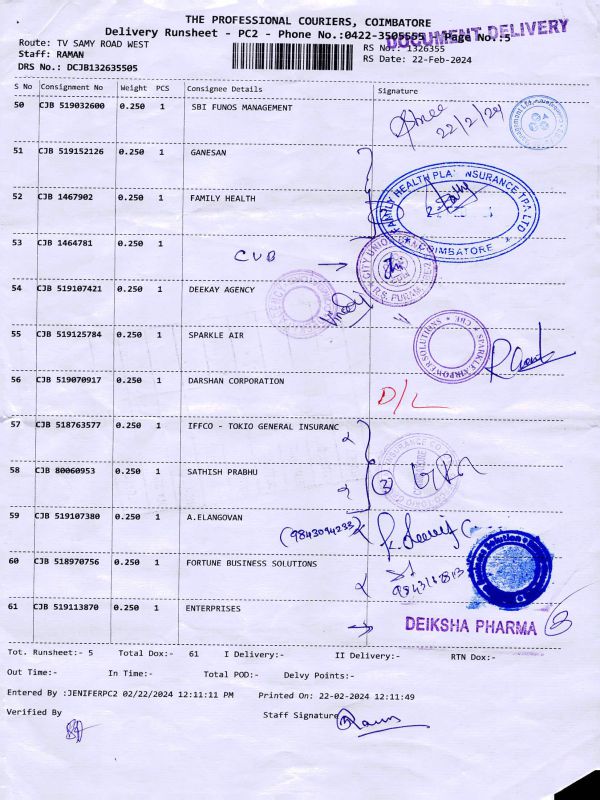 THE PROFESSIONAL COURIERS, COIMBATORE
Delivery Runsheet - PC2 - Phone No.:0422-3505555 Page No.:5
DOCUMENT DELIVERY
Route: TV SAMY ROAD WEST RS No.: 1326355
Staff: RAMAN RS Date: 22-Feb-2024
DRS No.: DCJB132635505
S No Consignment No Weight PCS Consignee Details Signature
50 CJB 519032600 0.250 1 SBI FUNOS MANAGEMENT
22/2/24
51 CJB 519152126 0.250 1 GANESAN
52 CJB 1467902 0.250 1 FAMILY HEALTH
FAMILY HEALTH PLAN INSURANCE TPA LTD
COIMBATORE
53 CJB 1464781 0.250 1
CUB
CITY UNION
R.S. PURAM
54 CJB 519107421 0.250 1 DEEKAY AGENCY
55 CJB 519125784 0.250 1 SPARKLE AIR
SPARKLE AIRPOWER SOLUTIONS CBE
56 CJB 519070917 0.250 1 DARSHAN CORPORATION
D/L
57 CJB 518763577 0.250 1 IFFCO - TOKIO GENERAL INSURANC
58 CJB 80060953 0.250 1 SATHISH PRABHU
59 CJB 519107380 0.250 1 A.ELANGOVAN
(9843094233)
60 CJB 518970756 0.250 1 FORTUNE BUSINESS SOLUTIONS
61 CJB 519113870 0.250 1 ENTERPRISES
DEIKSHA PHARMA
Tot. Runsheet:- 5 Total Dox:- 61 I Delivery:- II Delivery:- RTN Dox:-
Out Time:- In Time:- Total POD:- Delvy Points:-
Entered By :JENIFERPC2 02/22/2024 12:11:11 PM Printed On: 22-02-2024 12:11:49
Verified By Staff Signature